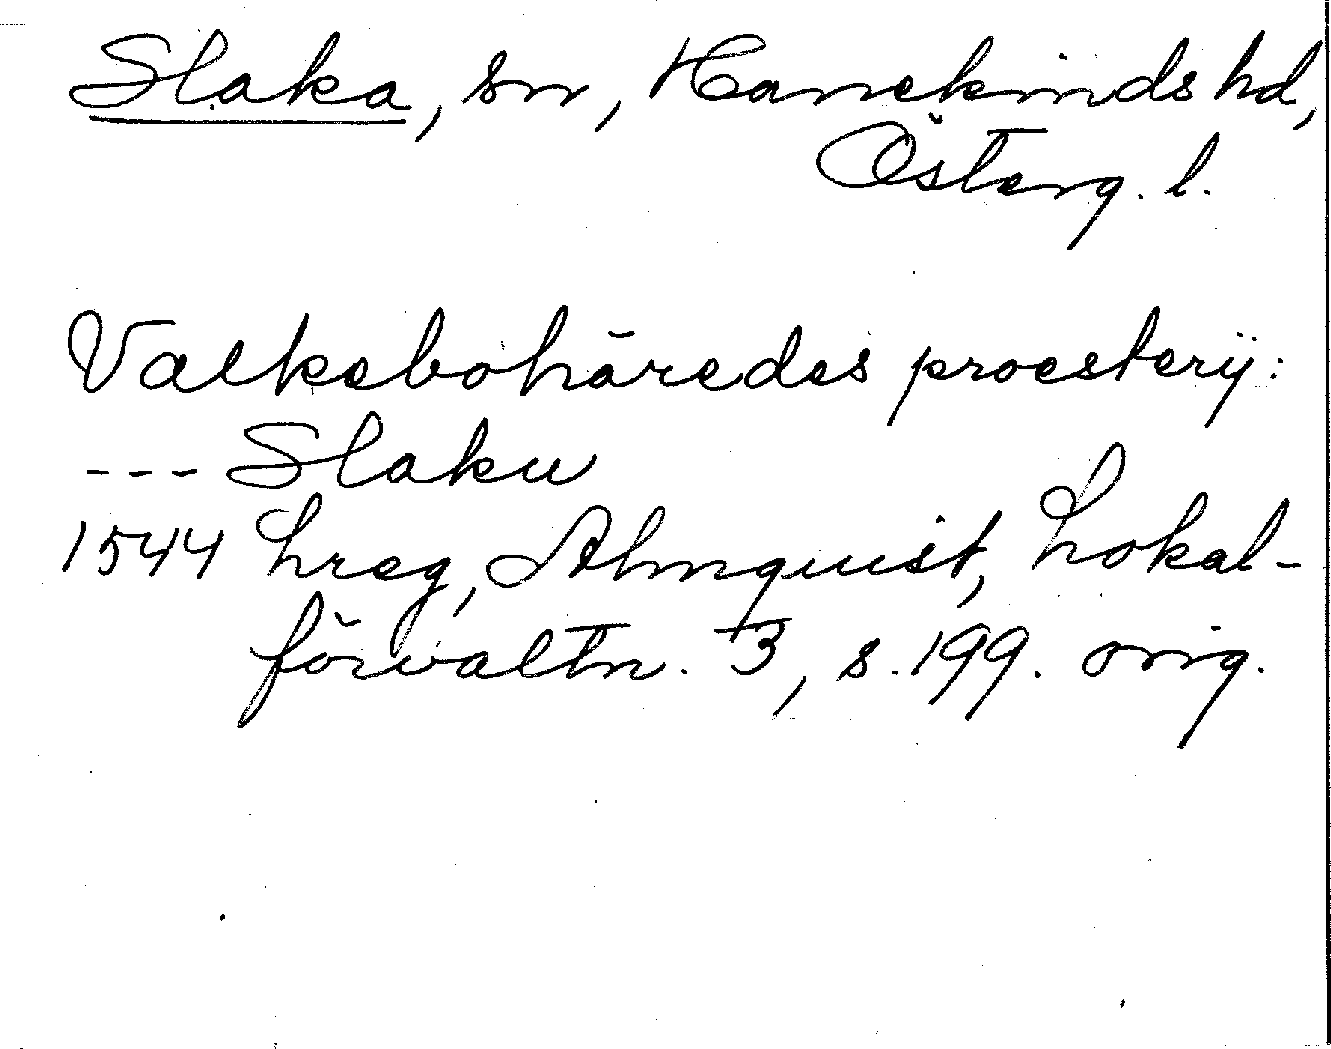 Slaka, sn, Hanekinds hd,
Österg. l.
Valkebohäredes proesterij:
--- Slaku
1544 Lreg, Almquist, Lokal-
förvaltn. 3, s. 199. orig.